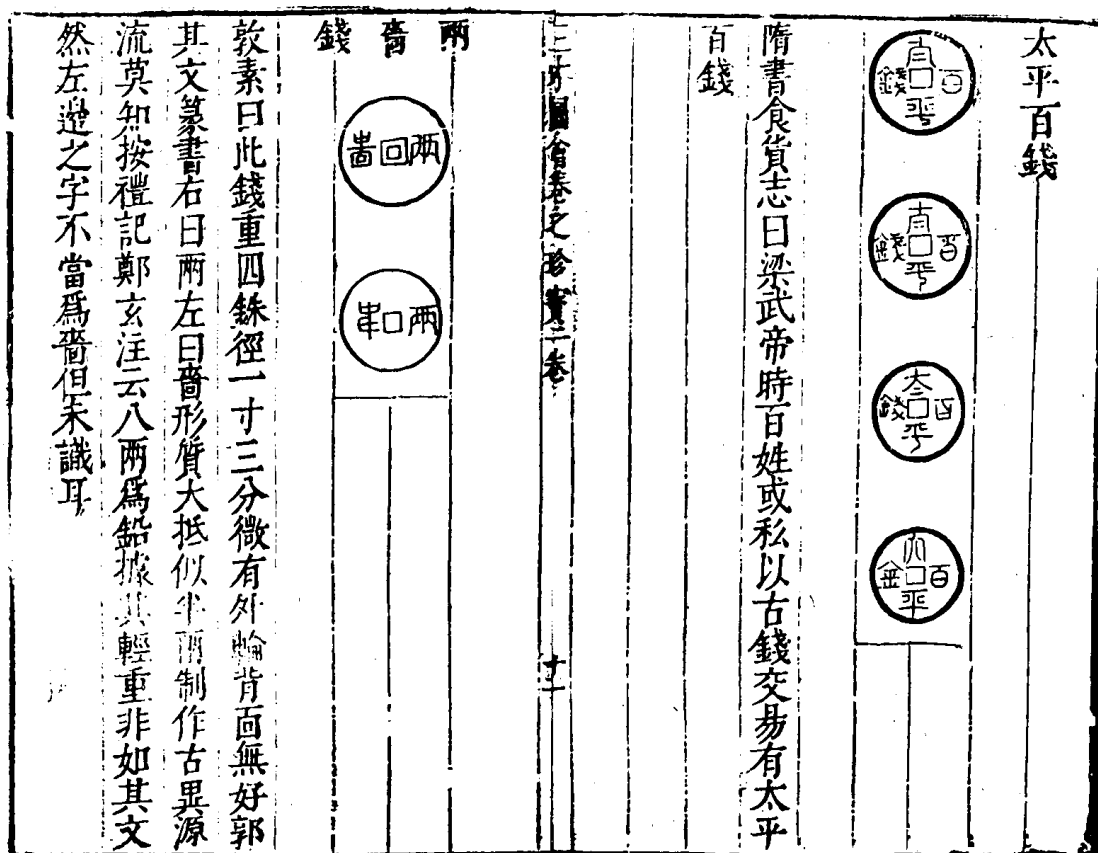 太平百錢
百 平 錢
百 平 錢
百 平 錢
百 平
隋書食貨志曰梁武帝時百姓或私以古錢交易有太平
百錢
三才圖會卷之珍寶二卷 十二
兩啬錢
兩
兩
敦素曰此錢重四銖徑一寸三分微有外輪背面無好郭
其文篆書右曰兩左曰啬形質大抵似半兩制作古異源
流莫知按禮記鄭玄注云八兩爲鎰據其輕重非如其文
然左邉之字不當爲啬但未識耳